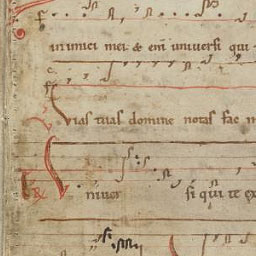 inimici mei & eni universi qui
Vias tuas domine notas fac m
℟ Univer si qui te ex